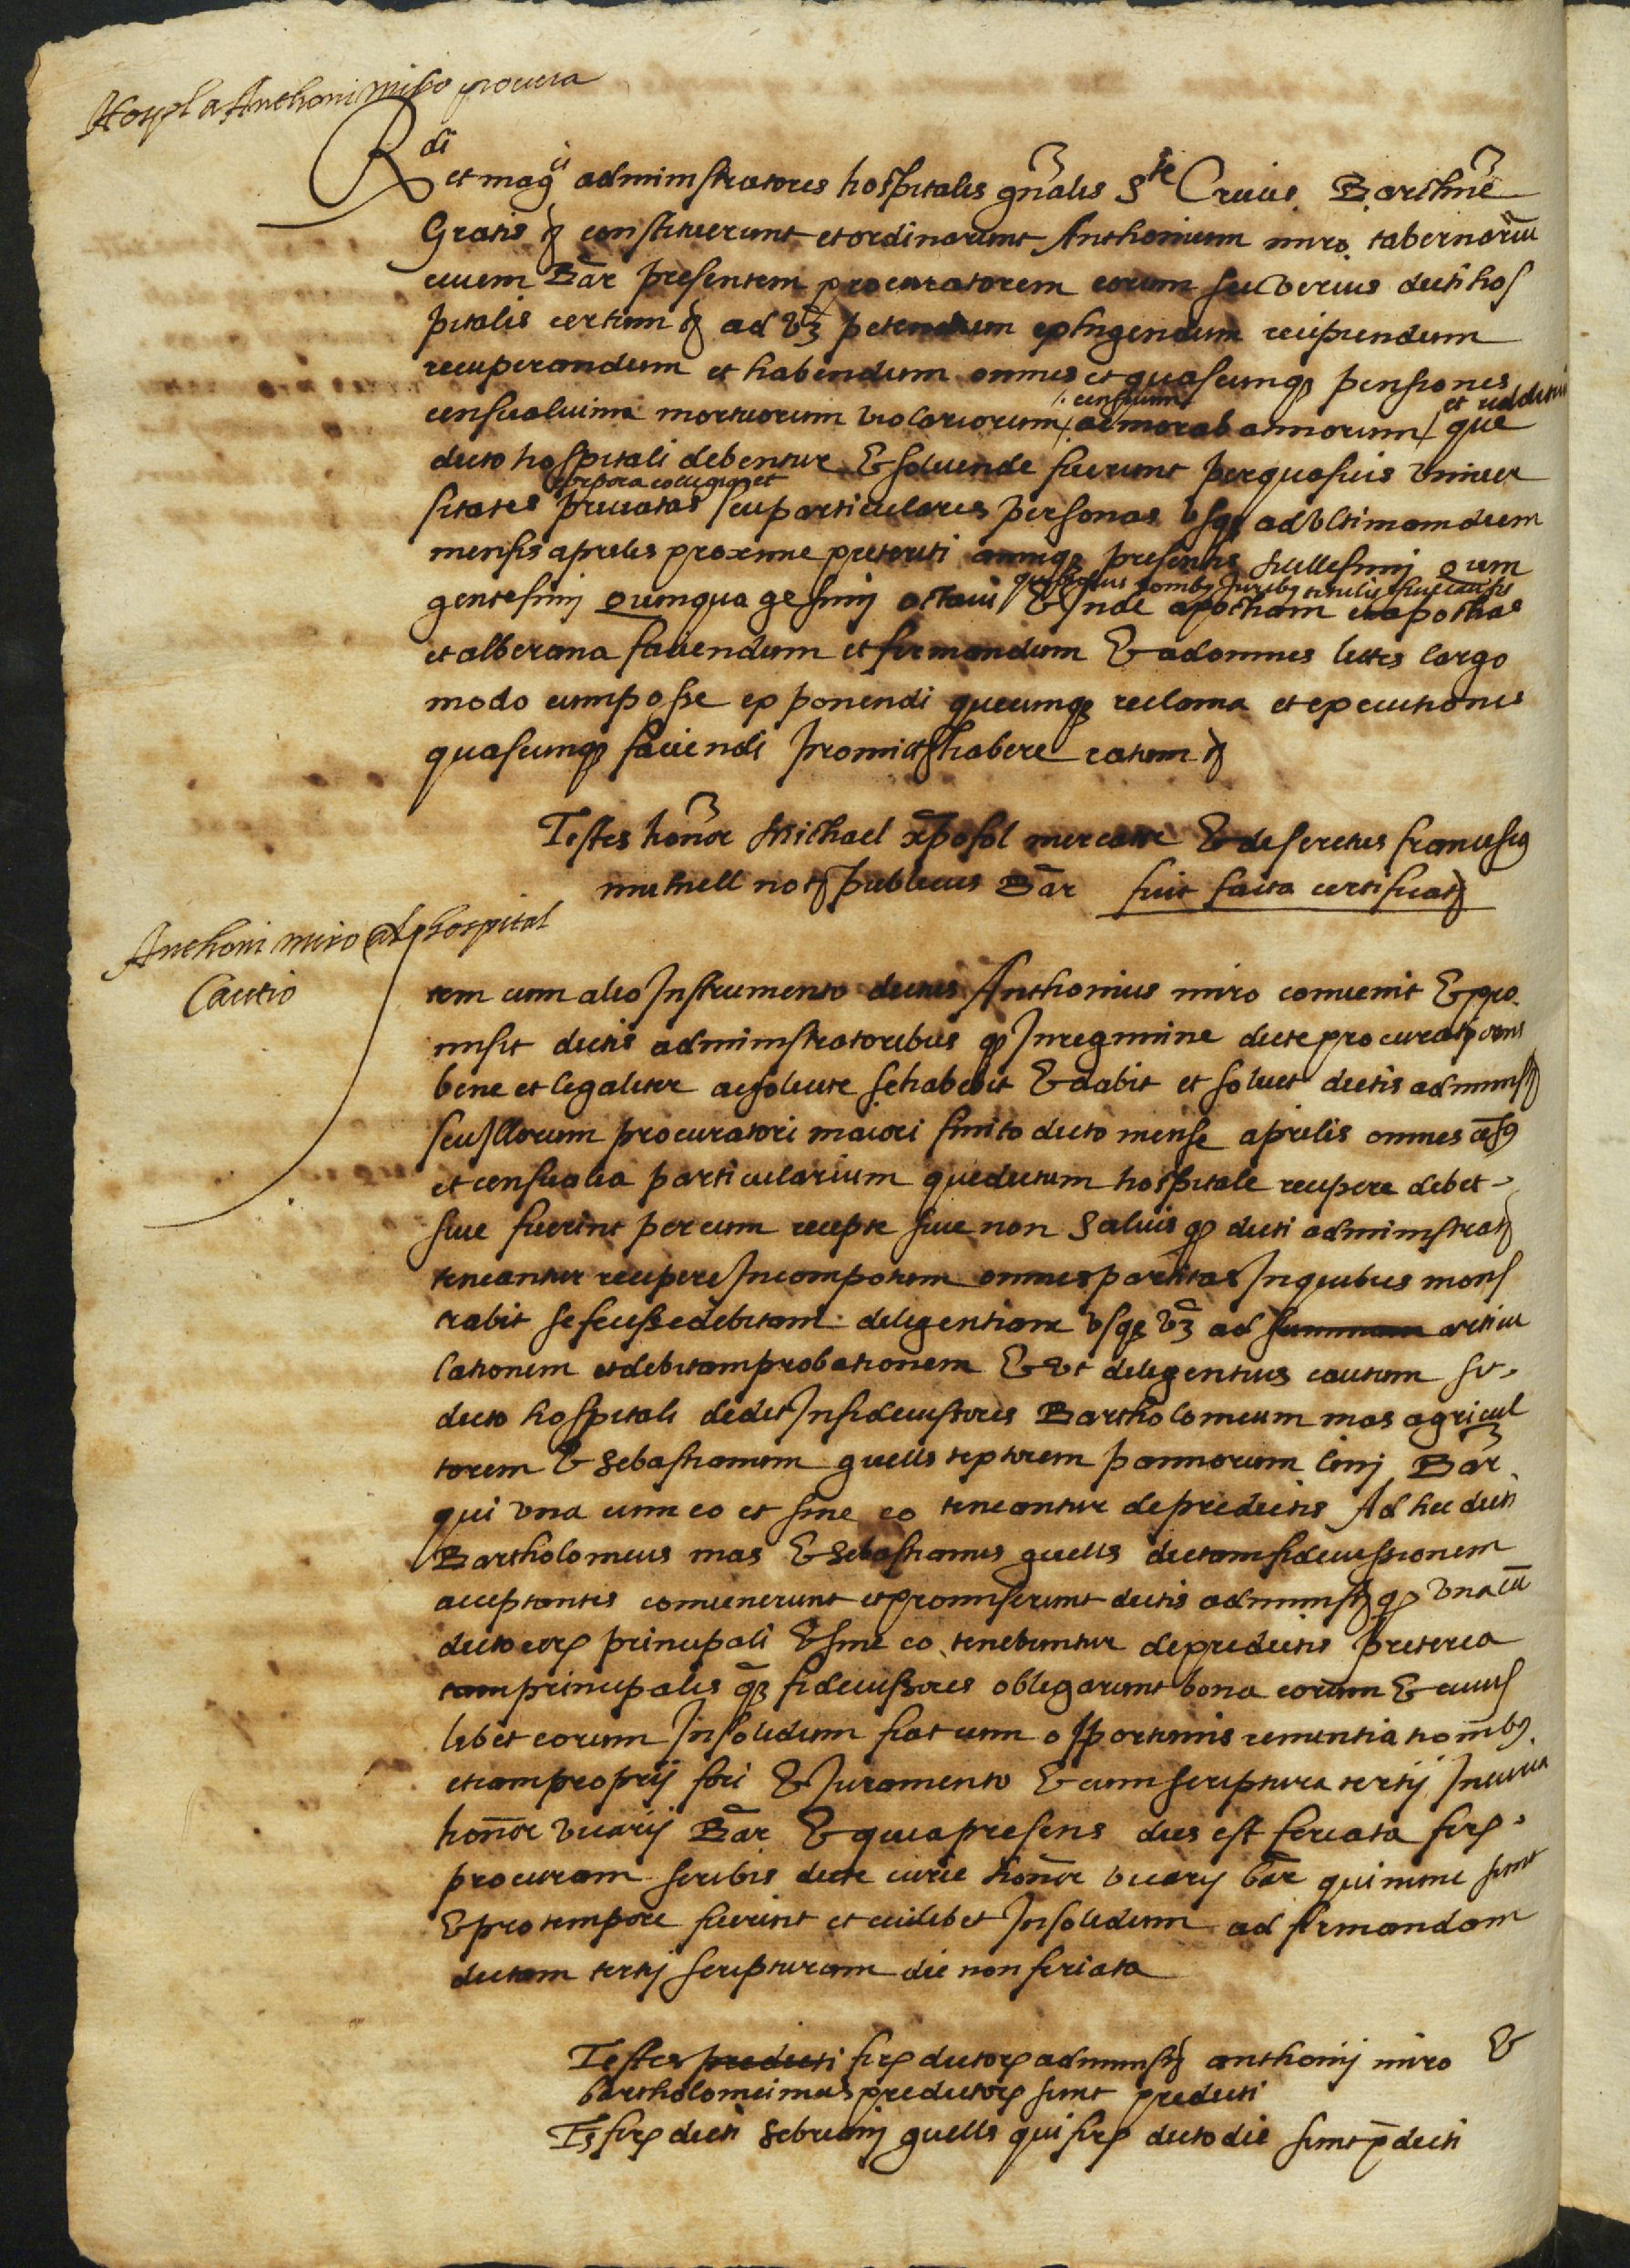 Hospl a Anthoni miro procura
Rdi et magci administratores hospitalis gn̄alis Ste Crucis Barchn̄e
Gratis &c constituerunt et ordinarunt Anthonium miro tabernariū
civem Bar̄ presentem procuratorem eorum seu verius dicti hos
pitalis certum &c ad vz petendum exhigendum recipiendum
recuperandum et habendum omnes et quascunq pensiones
censualium mortuorum violariorum / censuum / ac morabatinorum / et reddituū que
dicto hospitali debentur & solvende fuerunt per quasvis univer
sitates corpora collegia et privatas seu particulares personas usq ad ultimam diem
mensis aprilis proxime preteriti annq presentis Millesimi quin
gentesimi quinquagesimi octavi quibusvis nomīb Juribq titulis sive causis & Inde apocham et apochas
et albarana faciendum et firmandum & ad omnes lites largo
modo cum posse exponendi quecunq reclama et executiones
quascunq faciendi promitt habere ratum &c
Testes honor Michael xp̄ofol mercator & discretus franciscq
mutnell not publicus Bar̄ fuit facta certificat
Anthoni miro al hospital
Cautio
Item cum alio Instrumento dictus Anthonius miro convenit & pro
misit dictis administratoribus q In regimine dicte procurationis
bene et legaliter ac solicite se habebit & dabit et solvet dictis administ
seu Illorum procuratori maiori finito dicto mense aprilis omnes cēsq
et censualia particularium que dictum hospitale recipere debet
sive fuerint per eum recepte sive non Salvis q dicti administrat
teneantur recipere In compotum omnes partitas In quibus mons
trabit se fecisse debitam diligentiam usq vz ad summam articu
lationem et debitam probationem & Ut diligentius cautum sit
dicto hospitali dedit In fideiussores Bartholomeum mas agricul
torem & Sebastianum guells textorem pannorum lini Bar̄
qui una cum eo et sine eo teneantur de predictis Ad hec dicti
Bartholomeus mas & Sebastianus guells dictam fideiussionem
acceptantes convenerunt et promiserunt dictis administ q una cū
dicto eorȝ principali & sine eo tenebuntur de predictis preterea
tam principalis qȝ fideiussores obligarunt bona eorum & cuius
libet eorum In solidum fiat cum opportunis renuntiationibq
etiam proprij fori & Juramento & cum scriptura tertij In curia
honor vicarij Bar̄ & quia presens dies est feriata firȝ
procuram scribis dicte curie honor vicarij bar̄ qui nunc sunt
& pro tempore fuerint et cuilibet In solidum ad firmandam
dictam tertij scripturam die non feriata
Testes predicti firȝ dictorȝ administ anthonij miro &
bartholomei mas predictorȝ sunt predicti
Ts firȝ dicti Sebastianj guells qui firȝ dicto die sunt p̄dicti